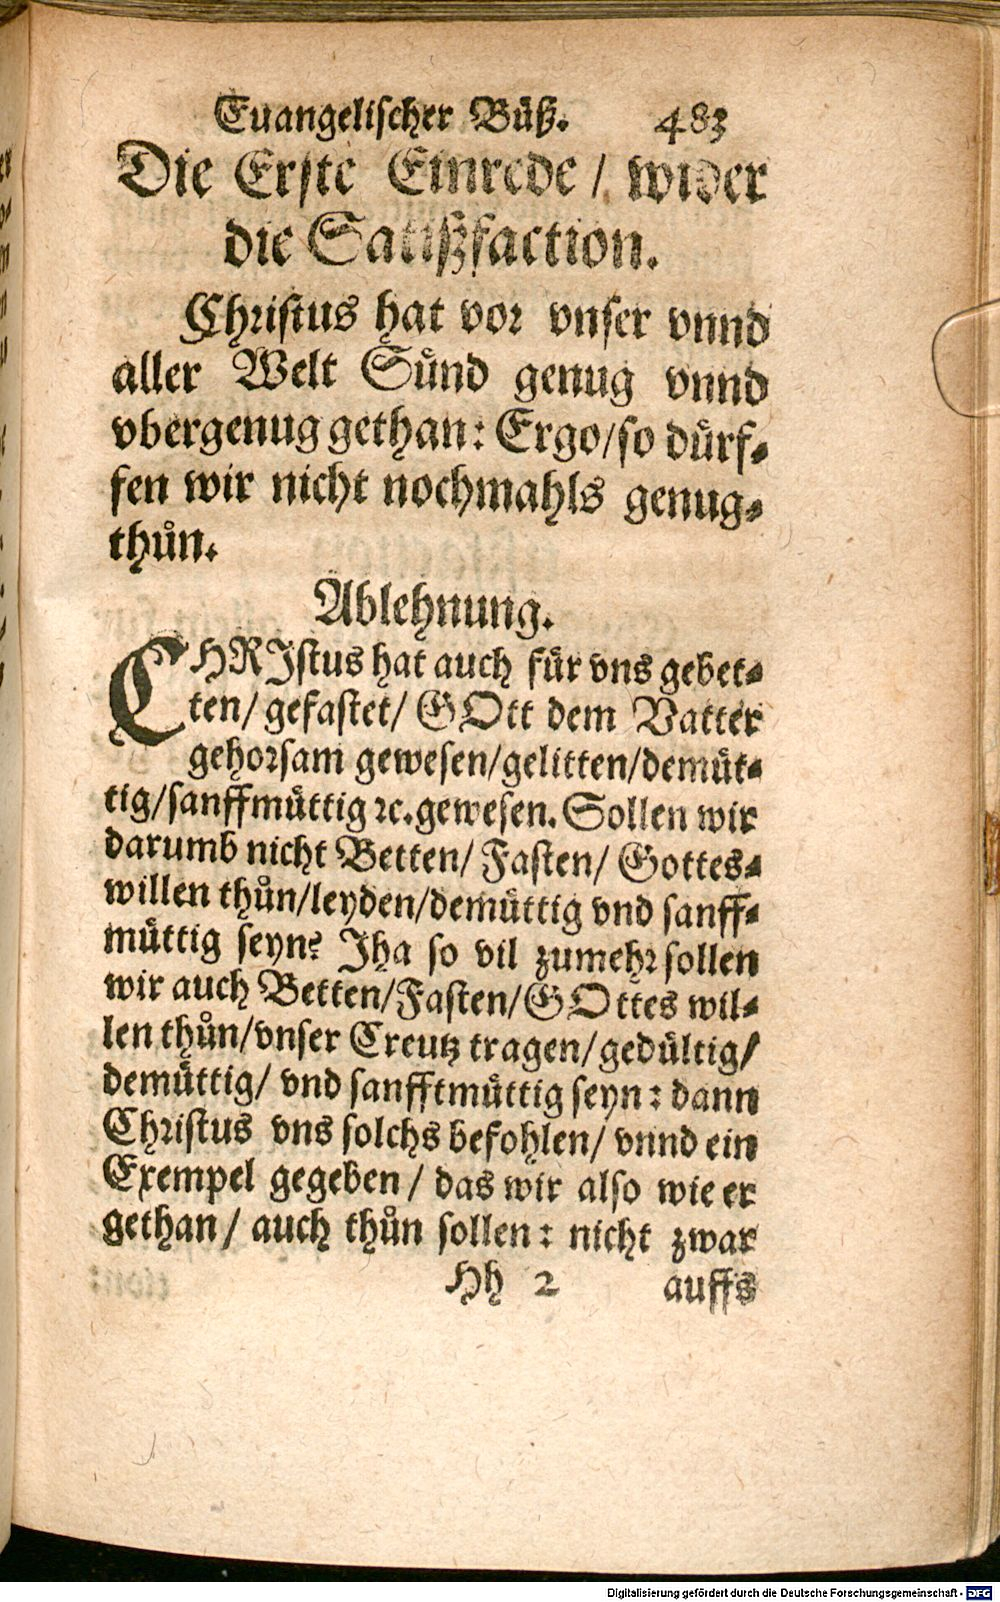 Euangelischer Büß. 483
Die Erste Einrede / wider
die Satißfaction.
Christus hat vor vnser vnnd
aller Welt Sünd genug vnnd
vbergenug gethan: Ergo/so dürf-
fen wir nicht nochmahls genug-
thůn.
Ablehnung.
CHRIstus hat auch für vns gebet-
ten/ gefastet/ GOtt dem Vatter
gehorsam gewesen/gelitten/demüt-
tig/sanffmüttig ꝛc. gewesen. Sollen wir
darumb nicht Betten/ Fasten/ Gottes-
willen thůn/leyden/demüttig vnd sanff-
müttig seyn? Jha so vil zumehr sollen
wir auch Betten/Fasten/GOttes wil-
len thůn/vnser Creutz tragen/gedültig/
demüttig/ vnd sanfftmüttig seyn: dann
Christus vns solchs befohlen/ vnnd ein
Exempel gegeben/ das wir also wie er
gethan/ auch thůn sollen: nicht zwar
Hh 2 auffs
Digitalisierung gefördert durch die Deutsche Forschungsgemeinschaft - DFG